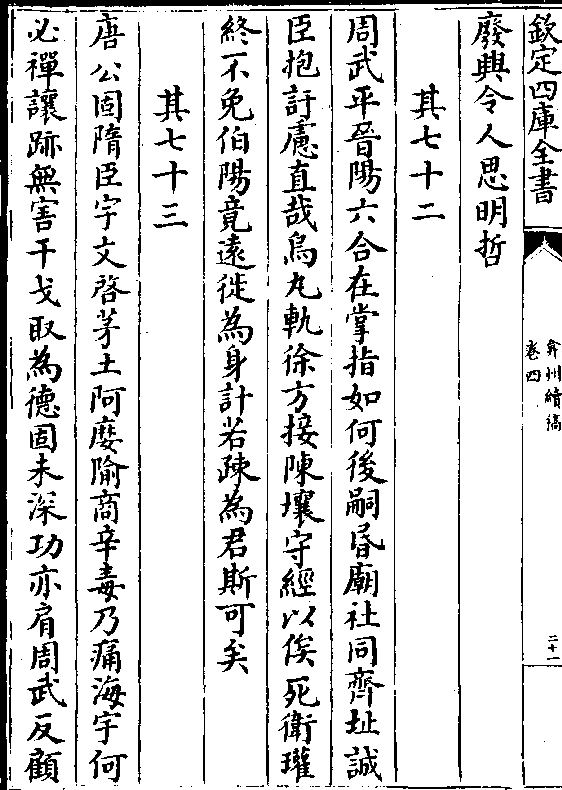 欽定四庫全書
弇州續稿
卷四
二十一
廢興令人思明哲
其七十二
周武平晉陽六合在掌指如何後嗣昏廟社同齊址誠
臣抱訏慮直哉烏丸軌徐方接陳壤守經以俟死衛瓘
終不免伯陽竟遠徙為身計若疎為君斯可矣
其七十三
唐公固隋臣宇文啓茅土阿㦄隃商辛毒乃痡海宇何
必禪讓跡無害干戈取為德固未深功亦肩周武反顧